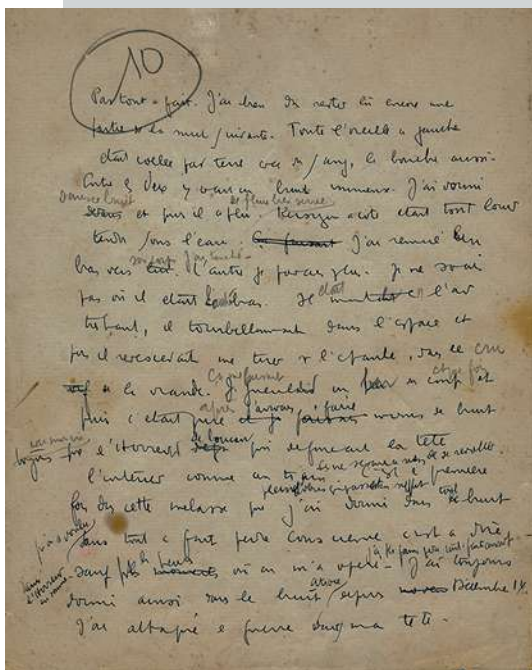 10
Pas tout à fait. J'ai bien dû rester là encore une
partie de la nuit suivante. Toute l'oreille à gauche
était collée par terre avec du sang, la bouche aussi.
Entre les deux y avait un bruit immense. J'ai dormi
dans ce bruit et puis il a plu de pluie bien serrée
Kersuzon à côté était tout lourd
tendu sous l'eau. J'ai remué un
bras vers son corps. J'ai touché. L'autre je pouvais plus. Je ne savais
pas où il était l'autre bras. Il était monté en l'air
très haut, il tourbillonnait dans l'espace et
puis il redescendait me tirer sur l'épaule, dans le cru
de la viande. Ça me faisait gueuler un bon coup et
puis c'était pire. Après j'arrivais à faire moins de bruit
que l'horreur de boucan qui défonçait la tête
l'intérieur comme un train. première
fois dans cette mélasse que j'ai dormi dans le bruit
sans tout à fait perdre conscience c'est à dire
dans l'horreur en somme
Sauf les heures où on m'a opéré. J'ai toujours
dormi ainsi dans le bruit atroce depuis Décembre 14.
J'ai attrapé la guerre dans ma tête.